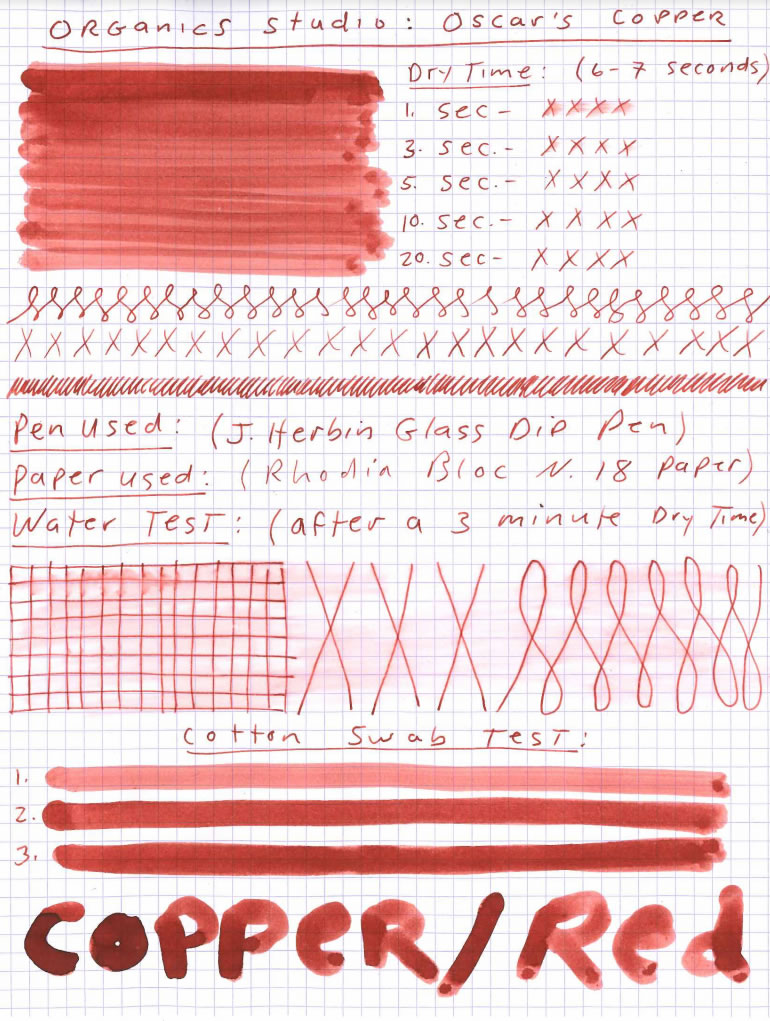 Organics Studio: Oscar's Copper
Dry Time: (6-7 seconds)
1. sec- X X X X
3. sec.- X X X X
5. sec.- X X X X
10. sec.- X X X X
20. sec- X X X X
X X X X X X X X X X X X X X X X X X X X X X X X X
Pen Used: (J. Herbin Glass Dip Pen)
Paper used: (Rhodia Bloc N. 18 paper)
Water Test: (after a 3 minute Dry Time)
X X X
Cotton Swab Test:
1.
2.
3.
Copper/Red